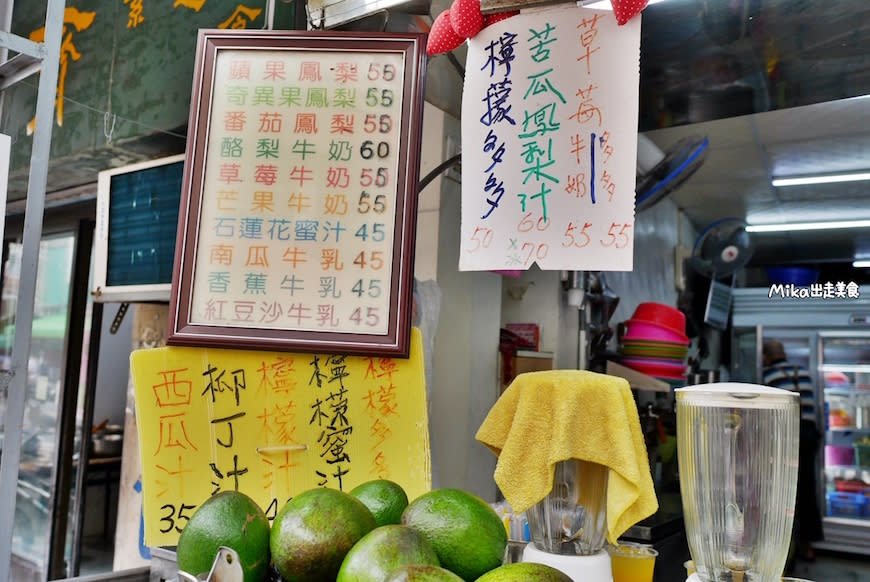 素食
蘋果鳳梨 55
奇異果鳳梨 55
番茄鳳梨 55
酪梨牛奶 60
草莓牛奶 55
芒果牛奶 55
石蓮花蜜汁 45
南瓜牛乳 45
香蕉牛乳 45
紅豆沙牛乳 45
檸檬多多
50
苦瓜鳳梨汁
60
70
草莓牛奶
55
多多
55
西瓜汁
35
柳丁汁
檸檬汁
檸檬蜜汁
檸檬多多
Mika出走美食